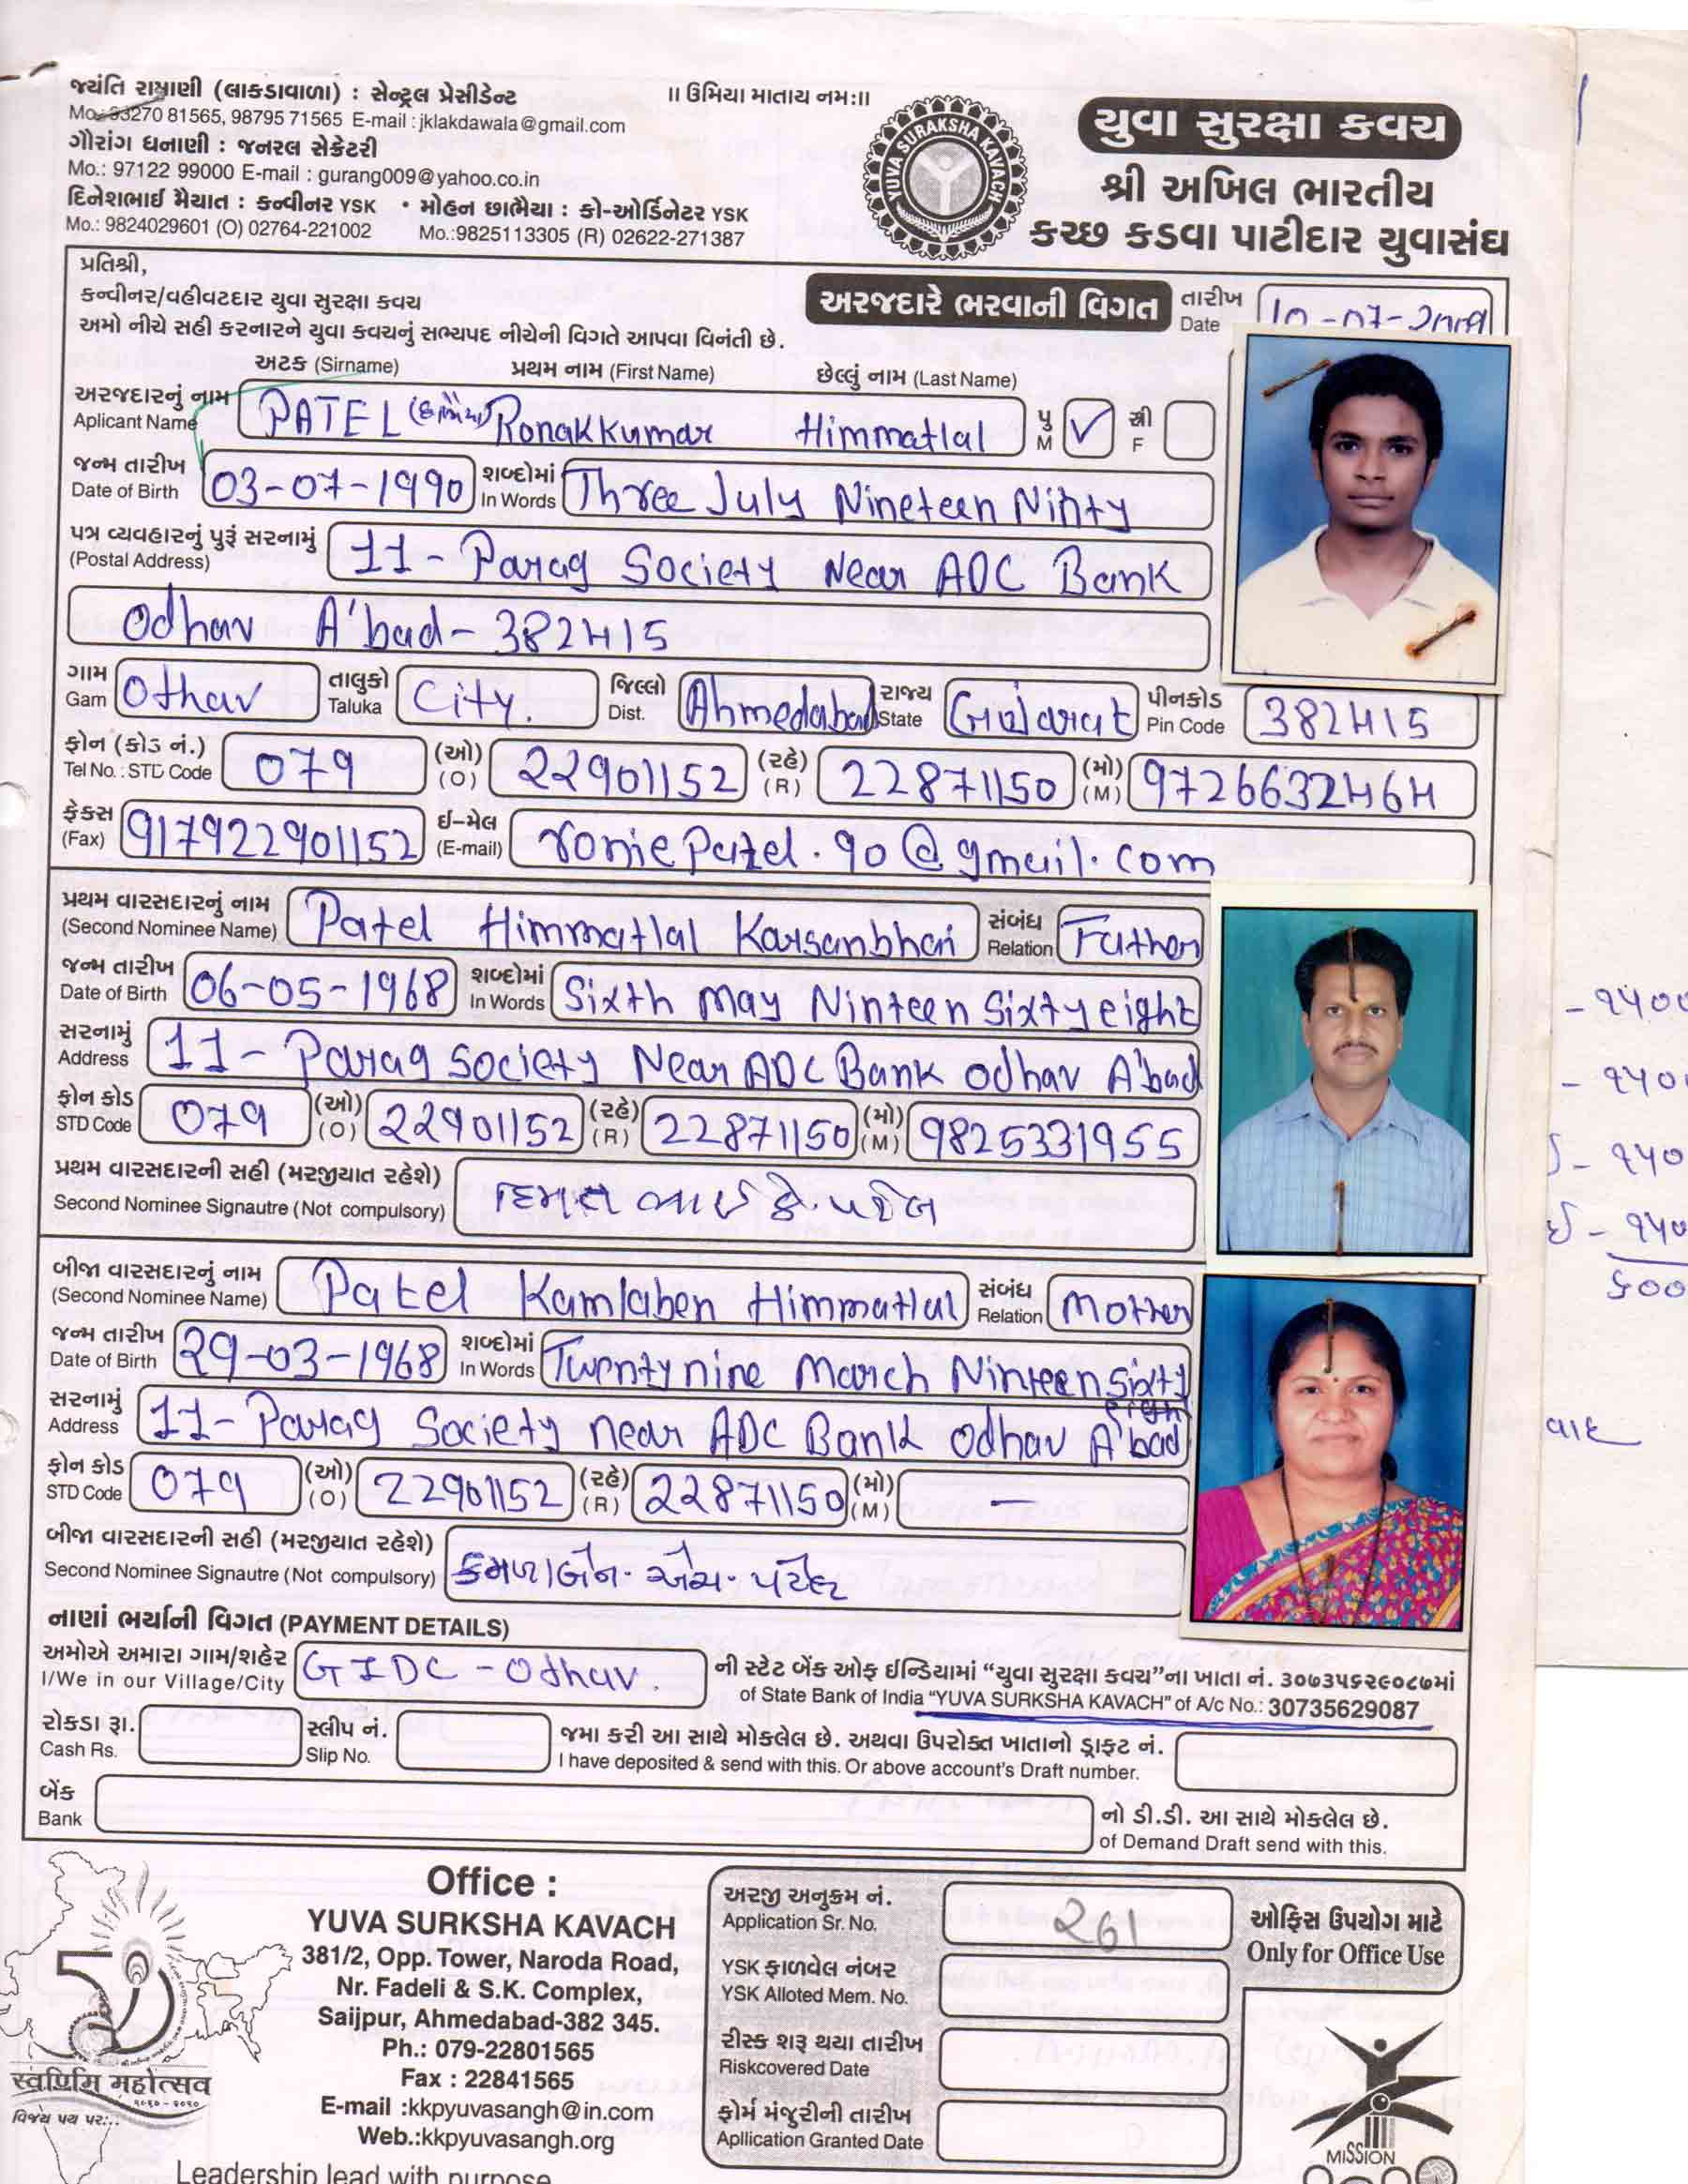 જયંતિ રામાણી (લાકડાવાળા) : સેન્ટ્રલ પ્રેસીડેન્ટ
Mo.: 93270 81565, 98795 71565 E-mail : jklakdawala@gmail.com
ગૌરાંગ ધનાણી : જનરલ સેક્રેટરી
Mo.: 97122 99000 E-mail : gurang009@yahoo.co.in
દિનેશભાઈ મૈયાત : કન્વીનર YSK • મોહન છાભૈયા : કો-ઓર્ડિનેટર YSK
Mo.: 9824029601 (O) 02764-221002 Mo.:9825113305 (R) 02622-271387
॥ ઉમિયા માતાય નમઃ॥
YUVA SURAKSHA KAVACH
યુવા સુરક્ષા કવચ
શ્રી અખિલ ભારતીય
કચ્છ કડવા પાટીદાર યુવાસંઘ
પ્રતિશ્રી,
કન્વીનર/વહીવટદાર યુવા સુરક્ષા કવચ
અમો નીચે સહી કરનારને યુવા કવચનું સભ્યપદ નીચેની વિગતે આપવા વિનંતી છે.
અરજદારે ભરવાની વિગત
તારીખ
Date 10-07-2009
અટક (Sirname) પ્રથમ નામ (First Name) છેલ્લું નામ (Last Name)
અરજદારનું નામ
Aplicant Name PATEL Ronakkumar Himmatlal પુ M ✓ સ્ત્રી F
જન્મ તારીખ
Date of Birth 03-07-1990 શબ્દોમાં In Words Three July Nineteen Ninty
પત્ર વ્યવહારનું પુરૂં સરનામું
(Postal Address) 11- Parag Society Near ADC Bank
Odhav A'bad-382415
ગામ Gam Othav તાલુકો Taluka City. જિલ્લો Dist. Ahmedabad રાજ્ય State Gujarat પીનકોડ Pin Code 382415
ફોન (કોડ નં.)
Tel No. : STD Code 079 (ઓ) (O) 22901152 (રહે) (R) 22871150 (મો) (M) 9726632464
ફેક્સ (Fax) 917922901152 ઈ-મેલ (E-mail) roniepatel.90@gmail.com
પ્રથમ વારસદારનું નામ
(Second Nominee Name) Patel Himmatlal Karsanbhai સંબંધ Relation Father
જન્મ તારીખ
Date of Birth 06-05-1968 શબ્દોમાં In Words Sixth May Ninteen Sixty eight
સરનામું
Address 11- Parag Society Near ADC Bank Odhav A'bad
ફોન કોડ
STD Code 079 (ઓ) (O) 22901152 (રહે) (R) 22871150 (મો) (M) 9825331955
પ્રથમ વારસદારની સહી (મરજીયાત રહેશે)
Second Nominee Signautre (Not compulsory) હિંમત ભાઈ કે. પટેલ
બીજા વારસદારનું નામ
(Second Nominee Name) Patel Kamlaben Himmatlal સંબંધ Relation Mother
જન્મ તારીખ
Date of Birth 29-03-1968 શબ્દોમાં In Words Twentynine March Ninteen Sixty eight
સરનામું
Address 11- Parag Society near ADC Bank Odhav A'bad
ફોન કોડ
STD Code 079 (ઓ) (O) 22901152 (રહે) (R) 22871150 (મો) (M) -
બીજા વારસદારની સહી (મરજીયાત રહેશે)
Second Nominee Signautre (Not compulsory) કમળાબેન. એચ. પટેલ
નાણાં ભર્યાની વિગત (PAYMENT DETAILS)
અમોએ અમારા ગામ/શહેર GIDC-Odhav. ની સ્ટેટ બેંક ઓફ ઈન્ડિયામાં “યુવા સુરક્ષા કવચ”ના ખાતા નં. ૩૦૭૩૫૬૨૯૦૮૭માં
I/We in our Village/City of State Bank of India "YUVA SURKSHA KAVACH" of A/c No.: 30735629087
રોકડા રૂા. સ્લીપ નં. જમા કરી આ સાથે મોકલેલ છે. અથવા ઉપરોક્ત ખાતાનો ડ્રાફ્ટ નં.
Cash Rs. Slip No. I have deposited & send with this. Or above account's Draft number.
બેંક નો ડી.ડી. આ સાથે મોકલેલ છે.
Bank of Demand Draft send with this.
Office :
YUVA SURKSHA KAVACH
381/2, Opp. Tower, Naroda Road,
Nr. Fadeli & S.K. Complex,
Saijpur, Ahmedabad-382 345.
Ph.: 079-22801565
Fax : 22841565
E-mail :kkpyuvasangh@in.com
Web.:kkpyuvasangh.org
Leadership lead with purpose
स्वर्णिम महोत्सव
૨૦૧૦
વિજય પથ પર...
અરજી અનુક્રમ નં.
Application Sr. No. 261
YSK ફાળવેલ નંબર
YSK Alloted Mem. No.
રીસ્ક શરૂ થયા તારીખ
Riskcovered Date
ફોર્મ મંજુરીની તારીખ
Apllication Granted Date
ઓફિસ ઉપયોગ માટે
Only for Office Use
MISSION